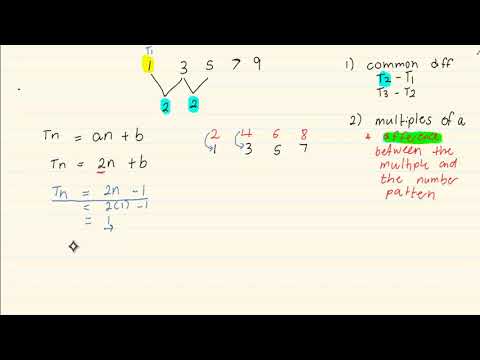 T1
1 3 5 7 9
2 2
Tn = an + b
Tn = 2n + b
Tn = 2n - 1
= 2(1) - 1
= 1
2 4 6 8
1 3 5 7
1) common diff
T2 - T1
T3 - T2
2) multiples of a
* difference
between the
multiple and
the number
pattern